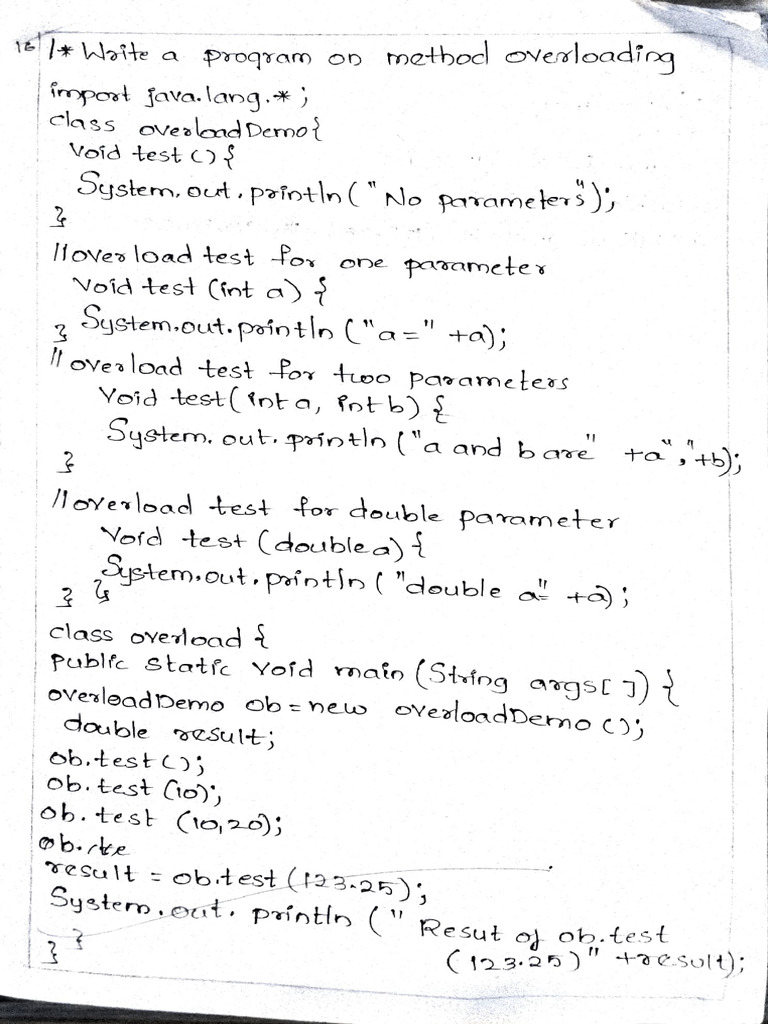 16) /* Write a program on method overloading
import java.lang.*;
class overloadDemo{
void test () {
System.out.println(" No parameters");
}
//overload test for one parameter
void test (int a) {
} System.out.println ("a=" +a);
// overload test for two parameters
void test( int a, int b) {
System.out.println ("a and b are" +a","+b);
}
//overload test for double parameter
void test (double a) {
System.out.println ( "double a=" +a);
} }
class overload {
public static void main (String args[ ]) {
overloadDemo ob = new overloadDemo ();
double result;
ob.test();
ob.test (10);
ob.test (10,20);
ob.
result = ob.test (123.25);
System.out.println (" Resut of ob.test
(123.25)" +result);
} }